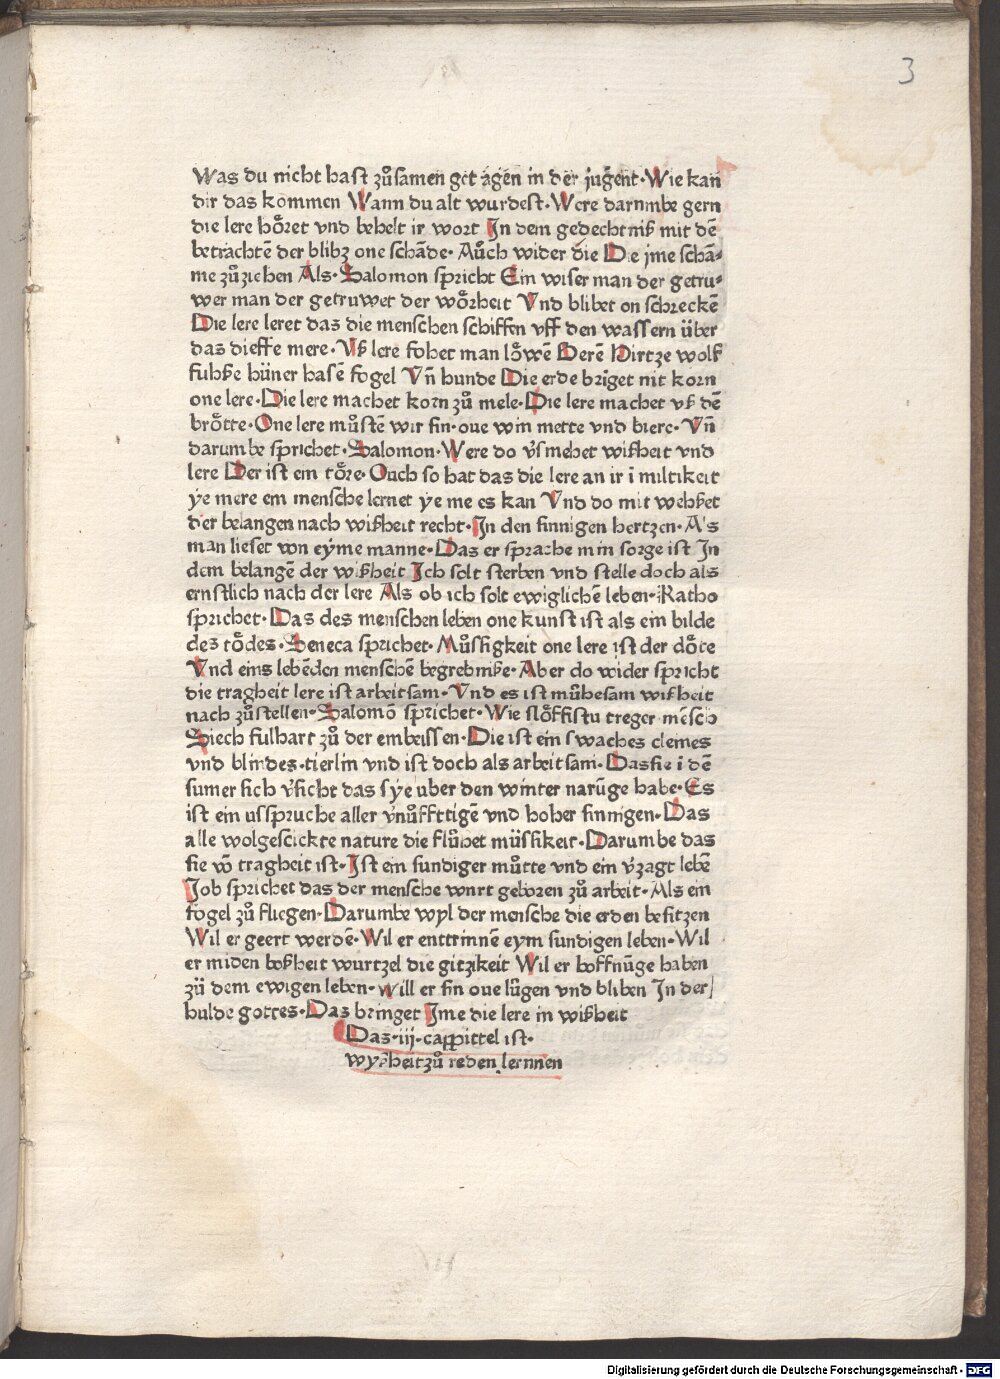 3
Was du nicht hast zůsamen get agen in der jugent· Wie kan
dir das kommen Wann du alt wurdest· Were darumbe gern
die lere hoͤret vnd behelt ir wort In dem gedechtniß mit dē
betrachtē der blibz one schāde· Auͦch wider die Die jme schā⸗
me zůziehen Als· Salomon spricht Ein wiser man der getru⸗
wer man der getruwet der woͤrheit Vnd blibet on schreckē
Die lere leret das die menschen schiffen vff den wassern über
das dieffe mere· Vß lere fohet man loͤwē Berē Hirtze wolff
fuhße hüner hasē fogel Vn̄ hunde Die erde bringet nit korn
one lere· Die lere machet korn zů mele· Die lere machet vß dē
broͤtte· One lere můstē wir sin· oue win mette vnd biere· Vn̄
darumbe sprichet· Salomon· Were do v̓smehet wißheit vnd
lere Der ist ein toͤre· Ouch so hat das die lere an ir ī miltikeit
ye mere ein mensche lernet ye me es kan Vnd do mit wehßet
der belangen nach wißheit recht· In den sinnigen hertzen· Als
man lieset von eyme manne· Das er sprache min sorge ist In
dem belangē der wißheit Ich solt sterben vnd stelle doch als
ernstlich nach der lere Als ob ich solt ewiglichē leben· Katho
sprichet· Das des menschen leben one kunst ist als ein bilde
des toͤdes· Seneca sprichet· Můssigkeit one lere ist der doͤte
Vnd eins lebēden menschē begrebniße· Aber do wider spricht
die tragheit lere ist arbeitsam· Vnd es ist mühesam wißheit
nach zůstellen· Salomō sprichet· Wie sloͤffistu treger mēsch
Siech fulhart zů der embeissen· Die ist ein swaches cleines
vnd blindes· tierlin vnd ist doch als arbeitsam· Das sie ī dē
sumer sich v̓sicht das sye uber den winter narüge habe· Es
ist ein usspruche aller v̓nůffttigē vnd hoher sinnigen· Das
alle wolgescickte nature die fluͤhet müssikeit· Darumbe das
sie vō tragheit ist· Ist ein sundiger můtte vnd ein v̓zagt lebē
Job sprichet das der mensche wurt geboren zů arbeit· Als ein
fogel zů fliegen· Darumbe wyl der mensche die erden besitzen
Wil er geert werdē· Wil er enttrinnē eym sundigen leben· Wil
er miden boßheit wurtzel die gitzikeit Wil er hoffnūge haben
zü dem ewigen leben· Will er sin oue lügen vnd bliben In der
hulde gottes· Das bringet Ime die lere in wißheit
Das· iij· cappittel ist·
wyßheit zů reden lernnen
Digitalisierung gefördert durch die Deutsche Forschungsgemeinschaft · DFG